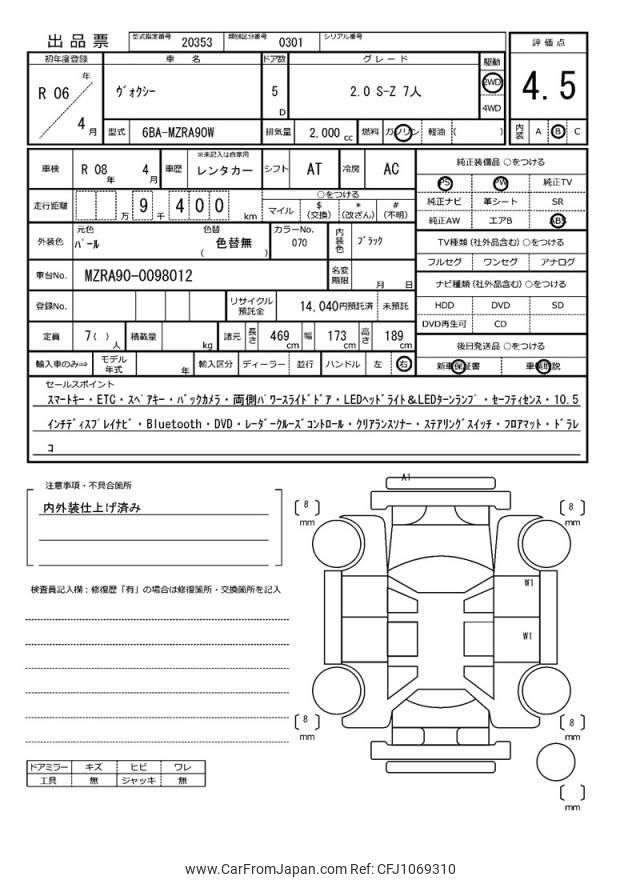 出品票 型式指定番号 20353 類別区分番号 0301 シリアル番号
評価点
4.5
内装 A B C
初年度登録 車名 ドア数 グレード 駆動
R 06 年 4 月
ヴォクシー 5 D 2.0 S-Z 7人 2WD 4WD
型式 6BA-MZRA90W 排気量 2,000 cc 燃料 ガソリン 軽油 ( )
車検 R 08 年 4 月 車歴 ※未記入は自家用 レンタカー シフト AT 冷房 AC
走行距離 万 9 千 4 0 0 km
○をつける
マイル $ (交換) * (改ざん) # (不明)
外装色 元色 パール 色替 色替無 ( ) カラーNo. 070 内装色 ブラック
車台No. MZRA90-0098012 名変期限 月 日
登録No. リサイクル預託金 14,040円預託済 未預託
定員 7( ) 人 積載量 kg 諸元 長さ 469 cm 幅 173 cm 高さ 189 cm
輸入車のみ⇒ モデル年式 年 輸入区分 ディーラー 並行 ハンドル 左 右
純正装備品 ○をつける
PS PW 純正TV
純正ナビ 革シート SR
純正AW エアB ABS
TV種類(社外品含む)○をつける
フルセグ ワンセグ アナログ
ナビ種類(社外品含む)○をつける
HDD DVD SD
DVD再生可 CD
後日発送品 ○をつける
新車保証書 車輌取説
セールスポイント
スマートキー・ETC・スペアキー・バックカメラ・両側パワースライドドア・LEDヘッドライト&LEDターンランプ・セーフティセンス・10.5
インチディスプレイナビ・Bluetooth・DVD・レーダークルーズコントロール・クリアランスソナー・ステアリングスイッチ・フロアマット・ドラレ
コ
注意事項・不具合箇所
内外装仕上げ済み
検査員記入欄:修復歴「有」の場合は修復箇所・交換箇所を記入
A1
[ 8 ] mm
[ 8 ] mm
W1
W1
[ 8 ] mm
[ 8 ] mm
[ ] mm
ドアミラー キズ ヒビ ワレ
工具 無 ジャッキ 無
www.CarFromJapan.com Ref: CFJ1069310